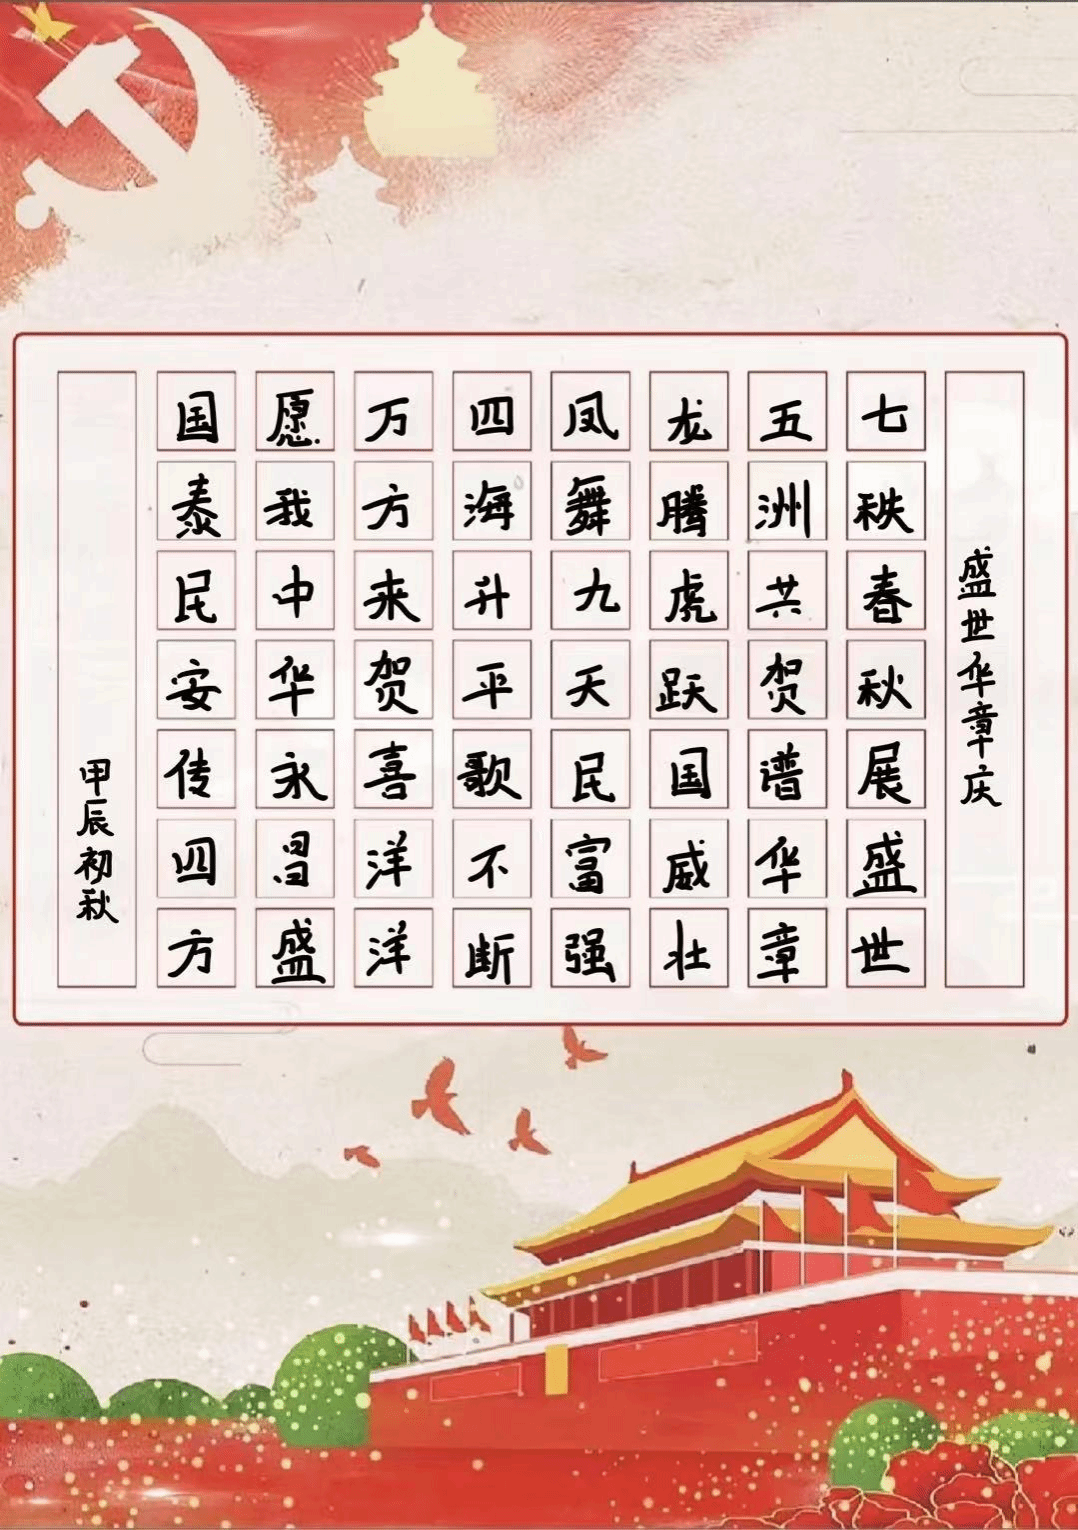 盛世华章庆
七秩春秋展盛世
五洲共贺谱华章
龙腾虎跃国威壮
凤舞九天民富强
四海升平歌不断
万方来贺喜洋洋
愿我中华永昌盛
国泰民安传四方
甲辰初秋